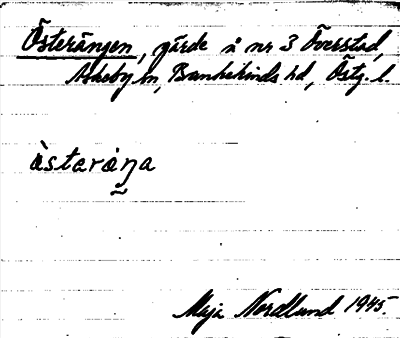 Österängen, gärde å nr 3 Överstad,
Askeby sn, Bankekinds hd, Östg. l.
ö̀steráŋa
Maja Nordlund 1945.